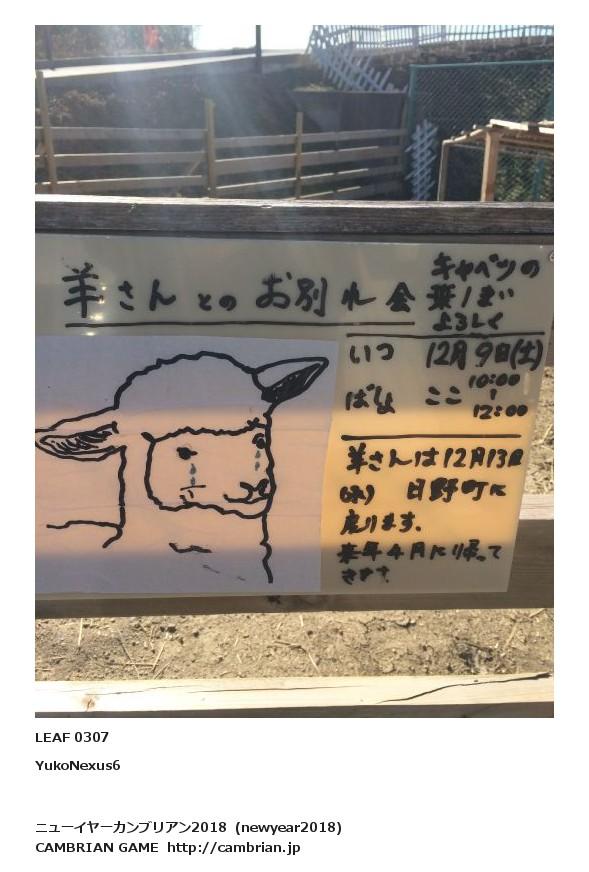 羊さんとのお別れ会
キャベツの
葉1まい
よろしく
いつ 12月9日(土)
10:00
12:00
ばしょ ここ
羊さんは12月13日
(水) 日野町に
戻ります。
来年4月に帰って
きます
LEAF 0307
YukoNexus6
ニューイヤーカンブリアン2018 (newyear2018)
CAMBRIAN GAME http://cambrian.jp